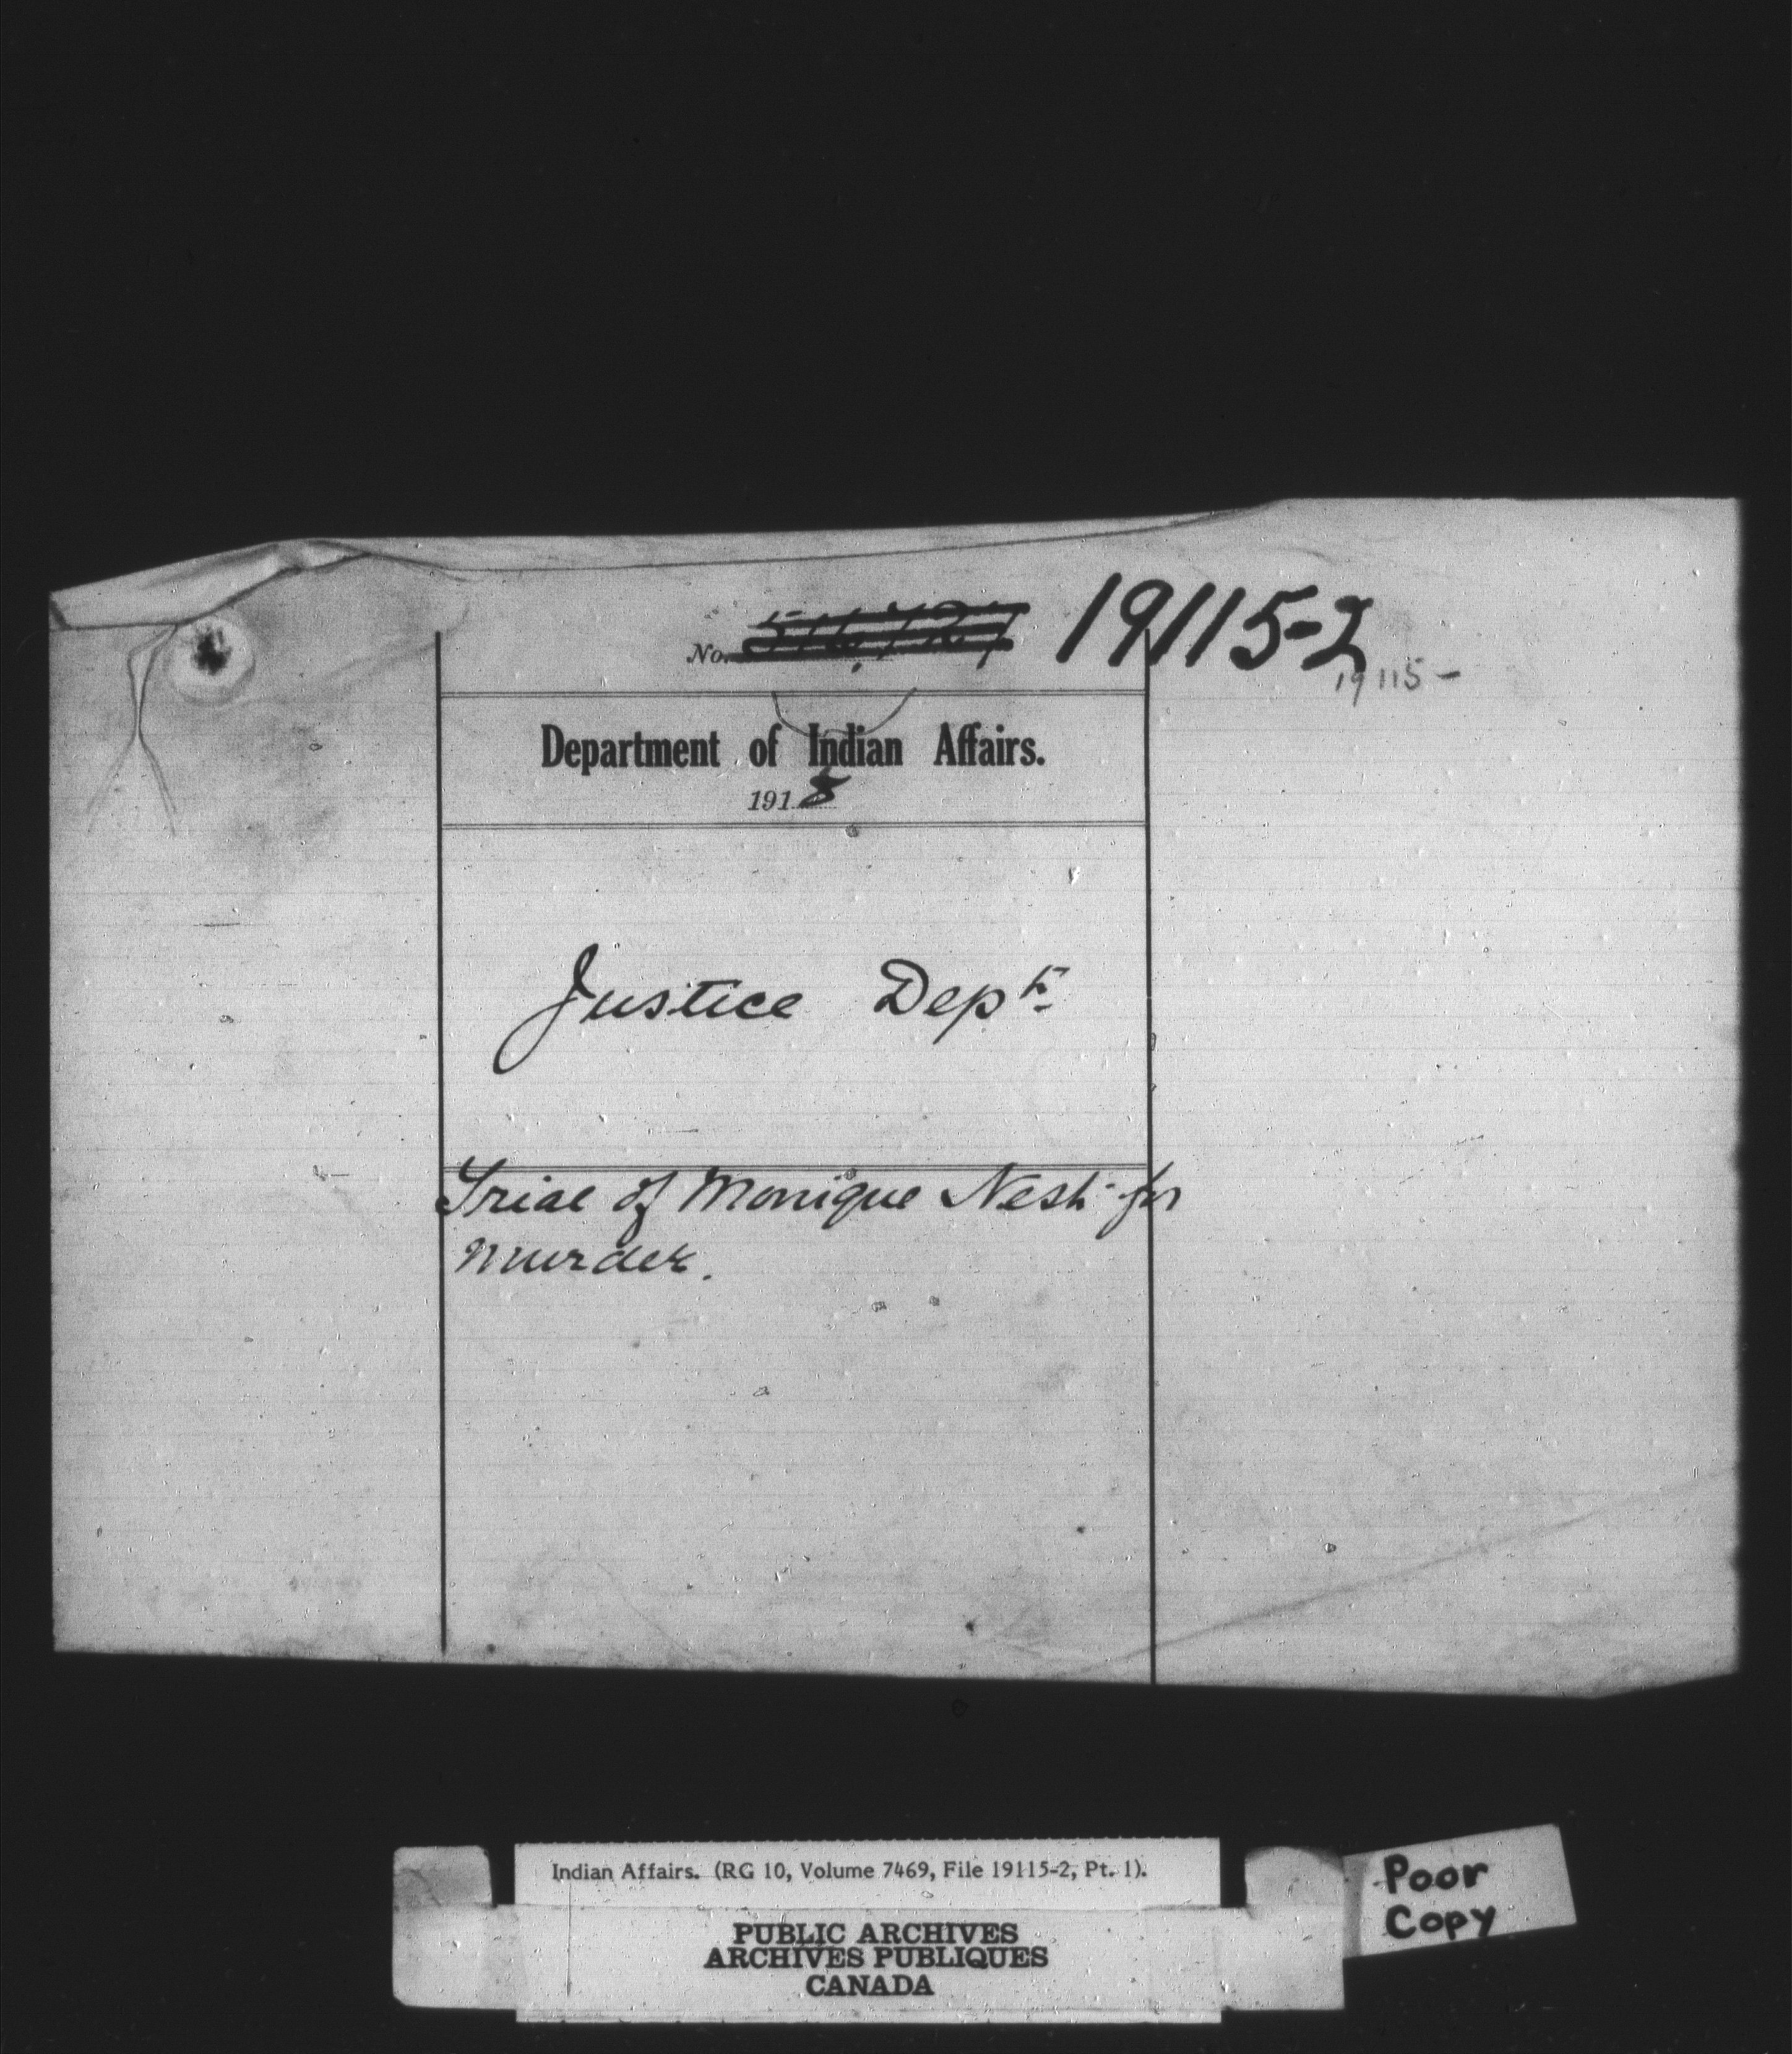 No. 516,727 19115-2
19115-
Department of Indian Affairs.
1918
Justice Dept.
Trial of Monique Nest for
Murder.
Indian Affairs. (RG 10, Volume 7469, File 19115-2, Pt. 1).
PUBLIC ARCHIVES
ARCHIVES PUBLIQUES
CANADA
Poor
Copy